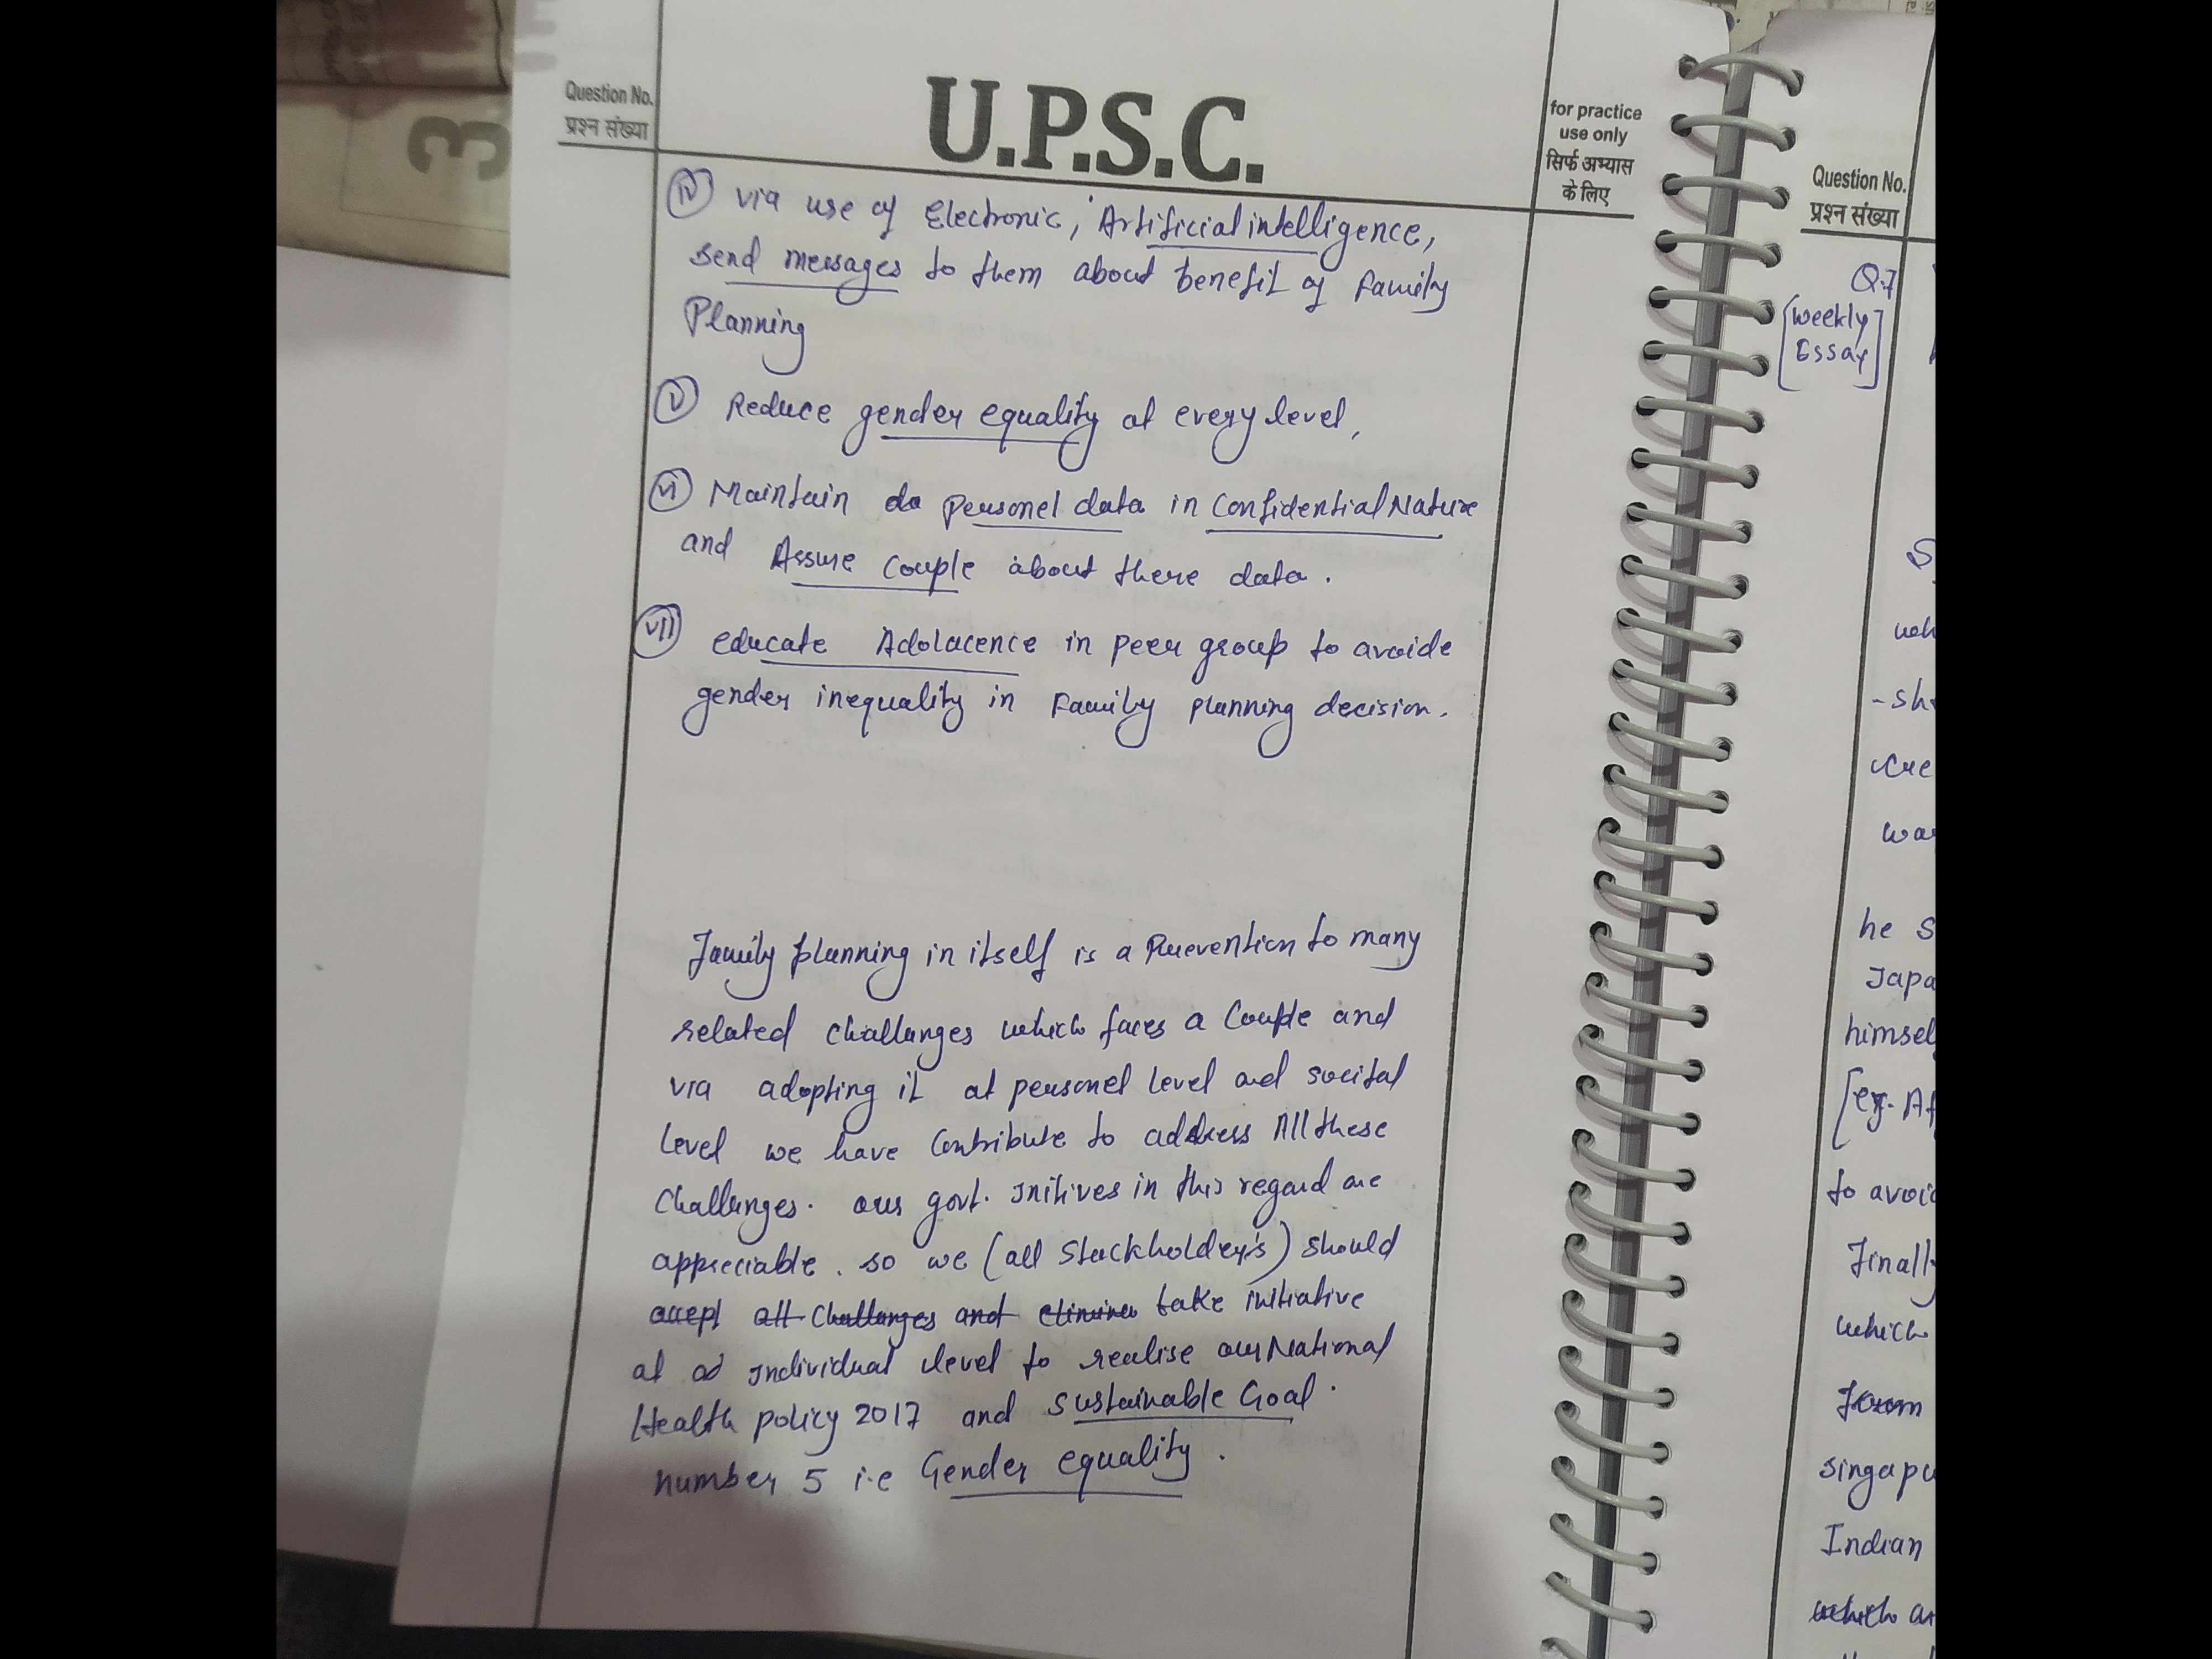 Question No.
प्रश्न संख्या
U.P.S.C.
for practice
use only
सिर्फ अभ्यास
के लिए
(iv) via use of Electronic, Artificial intelligence,
send messages to them about benefit of family
Planning
(v) Reduce gender equality at every level,
(vi) Maintain do personel data in Confidential Nature
and Assure couple about there data.
(vii) educate Adolacence in peer group to avoide
gender inequality in family planning decision.
family planning in itself is a Prevention to many
related challanges which faces a Couple and
via adopting it at personel level and socital
level we have contribute to address All these
Challanges. our govt. Initives in this regard are
appreciable. so we (all Stackholder's) should
accept all challanges and elimina take initiative
at individual level to realise our National
Health policy 2017 and Sustainable Goal.
number 5 i.e Gender equality.
Question No.
प्रश्न संख्या
Q.7
[Weekly
Essay]
he
himsel
[eg.
to avoi
Finall
which
from
singap
Indian
which
3